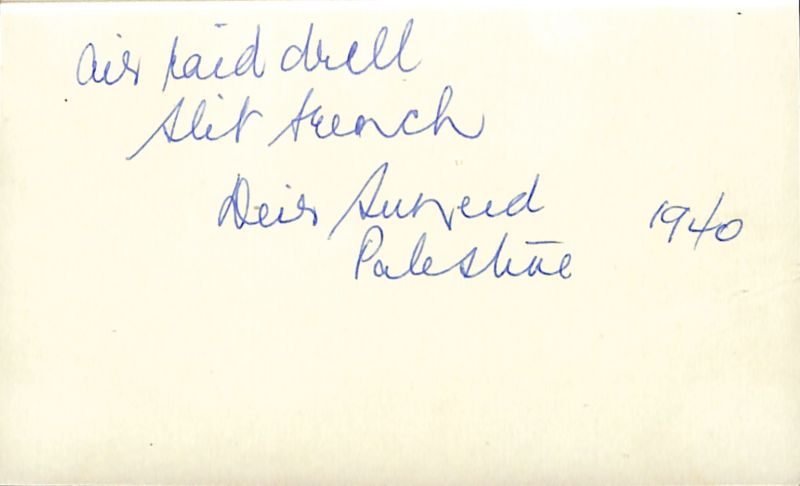 Air raid drill
Slit trench
Deir Suneid 1940
Palestine